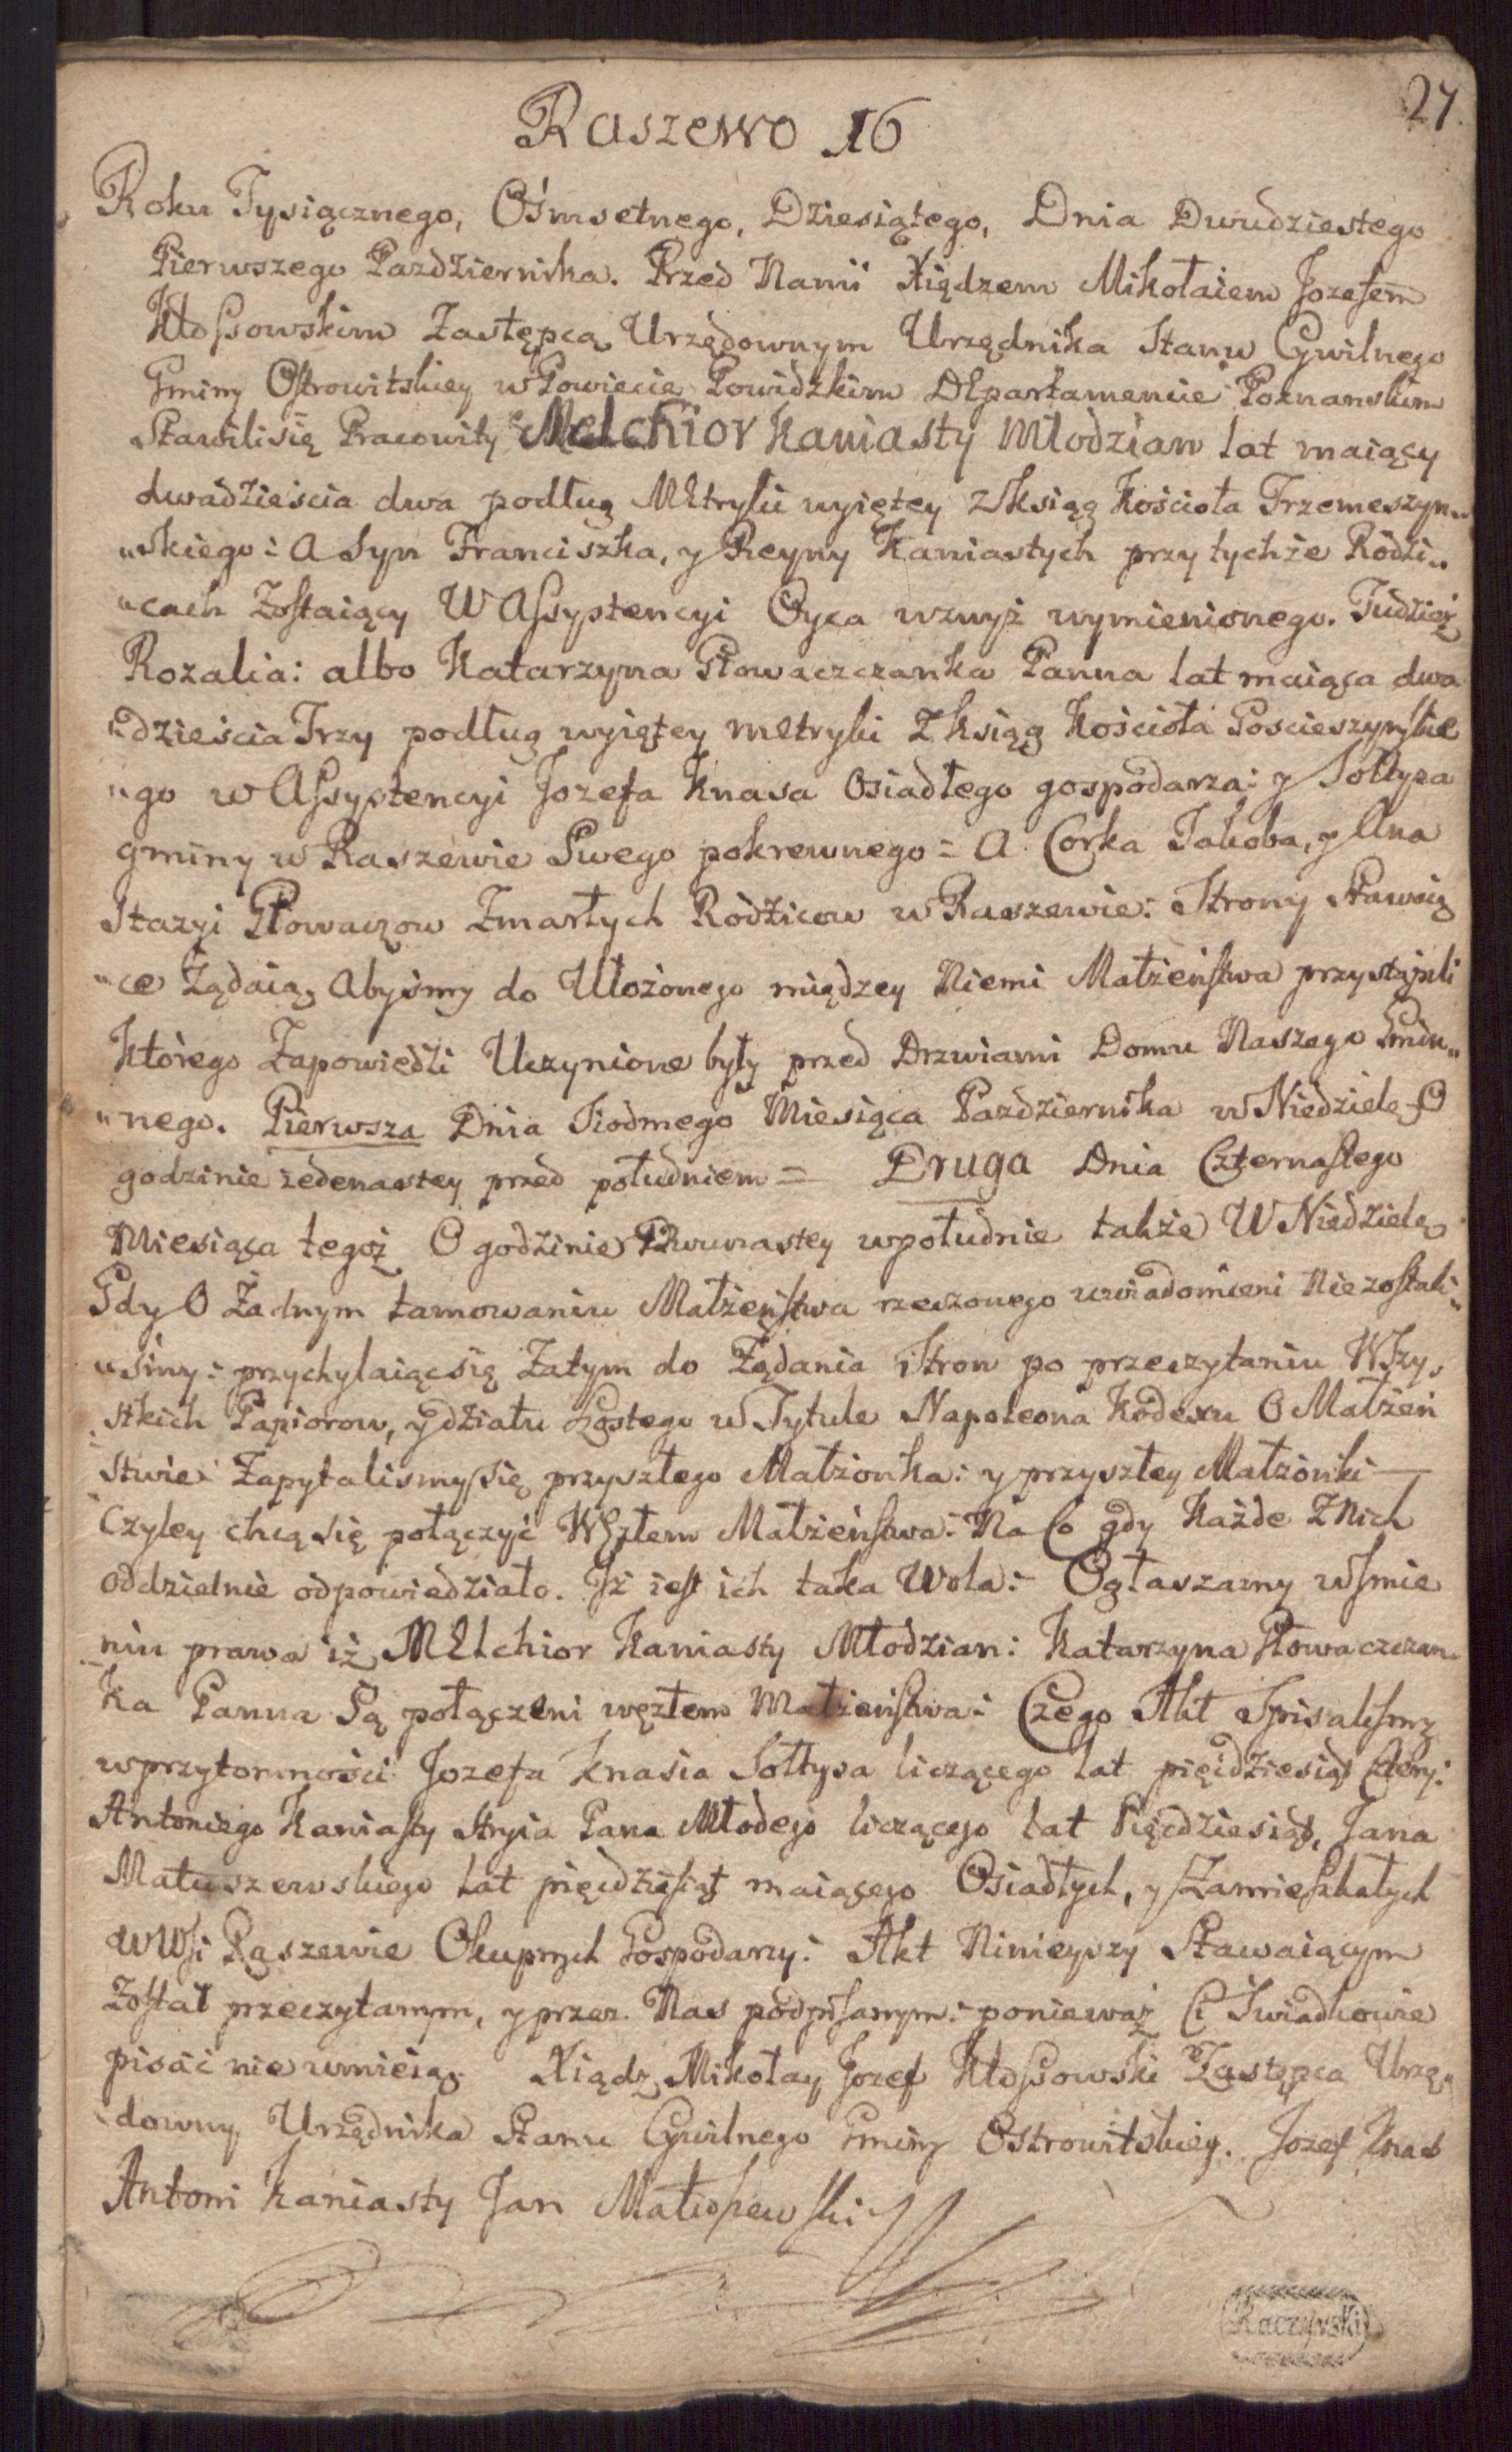 27.
Raszewo 16
Roku Tysiącznego, Ośmsetnego, Dziesiątego, Dnia Dwudziestego
Pierwszego Pazdziernika. Przed Nami Xiędzem Mikołaiem Jozefem
Kłossowskim Zastępcą Urzędownym Urzędnika Stanu Cywilnego
Gminy Ostrowitskiey w Powiecie Powidzkim DEpartamencie Poznanskim
Stawili się Pracowity Melchior Kaniasty Młodzian lat maiący
dwadzieścia dwa podług MEtryki wyiętey z ksiąg Kościoła Trzemeszyn„
„skiego: A Syn Franciszka, y Reyny Kaniastych przy tychże Rodzi„
„cach Zostaiący W Assystencyi Oyca wzwyż wymienionego. Tudzież
Rozalia: albo Katarzyna Słowaczczanka Panna lat maiąca dwa
„dzieścia Trzy podług wyiętey mEtryki Z ksiąg Kościoła Gościeszyńskie
„go w Assystencyi Jozefa Knasa Osiadłego gospodarza: y Sołtysa
gminy w Raszewie Swego pokrewnego = A Corka Jakoba, y Ana
Stazyi Słowaczow Zmarłych Rodzicow w Raszewie: Strony Stawaią
„ce Żądaią, Abyśmy do Ułożonego między Niemi Małżeństwa przystąpili
Którego Zapowiedzi Uczynione były przed Drzwiami Domu Naszego Gmin„
„nego. Pierwsza Dnia Siodmego Miesiąca Pazdziernika w Niedziele O
godzinie iedenastey przed południem = Druga Dnia Czternastego
Miesiąca tegoż O godzinie Dwunastey w południe także W Niedzielę
Gdy O Żadnym tamowaniu Małżeństwa rzeczonego uwiadomieni Nie zostali
„śmy: przychylaiąc się Zatym do Żądania Stron po przeczytaniu Wszy„
stkich Papiorow, y działu szostego w Tytule Napoleona Kodexu O Małżeń
stwie: Zapytalismy się przyszłego Małżonka: y przyszłey Małżonki —
Czyley chcą się połączyć Węzłem Małżeństwa: Na Co gdy Każde Z Nich
oddzielnie odpowiedziało. Iż iest ich taka Wola: Ogłaszamy w Imie
niu prawa iż MElchior Kaniasty Młodzian: Katarzyna Słowaczczan„
ka Panna Są połączeni węzłem Małżeństwa: Czego Akt Spisalismy
w przytomności Jozefa Knasia Sołtysa liczącego lat pięćdziesiąt Cztery:
Antoniego Kaniasty Stryia Pana Młodego liczącego lat Pięćdziesiąt, Jana
Matuszewskiego lat pięćdziesiąt maiącego Osiadłych, y Zamieszkałych
w Wsi Raszewie Okupnych Gospodarzy: Akt Ninieyszy Stawaiącym
Został przeczytanym, y przez Nas podpisanym: ponieważ Ci Świadkowie
pisać nie umieią. Xiądz Mikołay Jozef Kłossowski Zastępca Urzę„
downy Urzędnika Stanu Cywilnego Gminy Ostrowitskiey. Jozef Knas
Antoni Kaniasty Jan Matuszewski
Raczyński